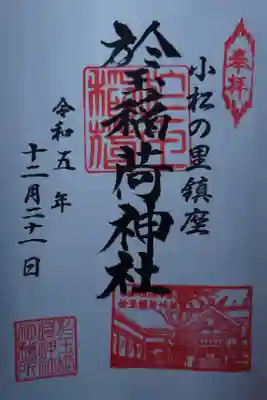 奉拝
小松の里鎮座
於玉稲荷神社
令和五年
十二月二十一日